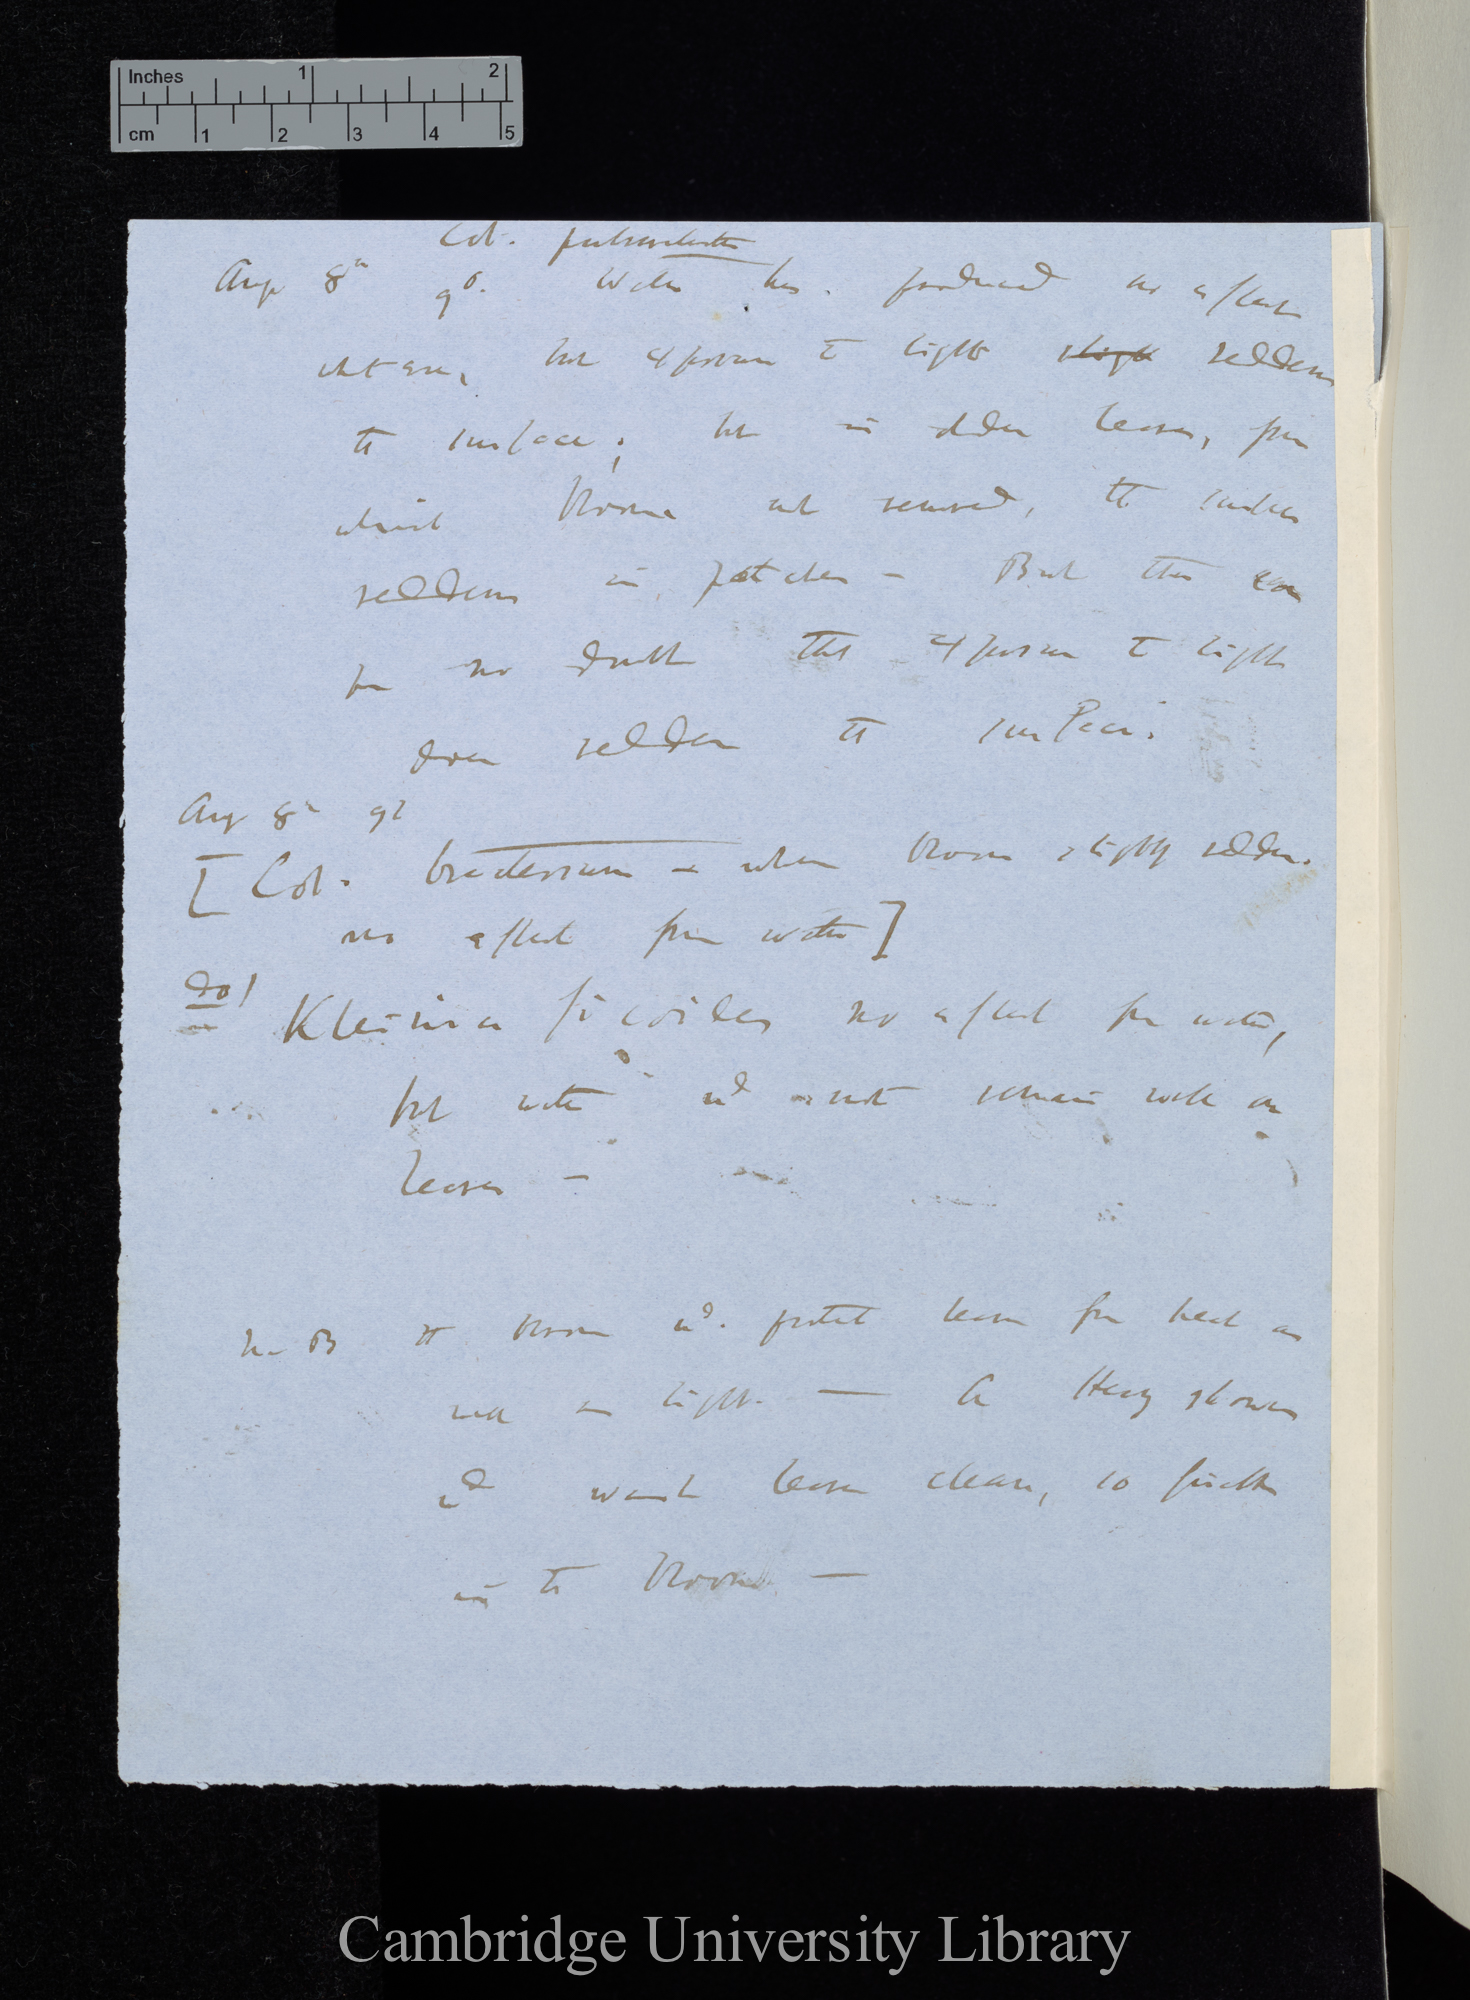 Inches 1 2
cm 1 2 3 4 5
Cot.
Aug 8th 90. Water has produced no effect
whatever, but exposure to light slight reddens
the surface; but in older leaves, from
which bloom not removed, the surface
reddens in patches — But there can
be no doubt that exposure to light
does redden the surface.
Aug 8th
[Cot. bracteosum — when bloom slightly redden.
no effect from water]
do/ Kleinia ficoides no effect from water,
but water wd not remain well on
leaves —
N.B the bloom wd. protect leaves from heat as
well as light. — A Heavy shower
wd wash leaves clean, so
in the bloom —
Cambridge University Library